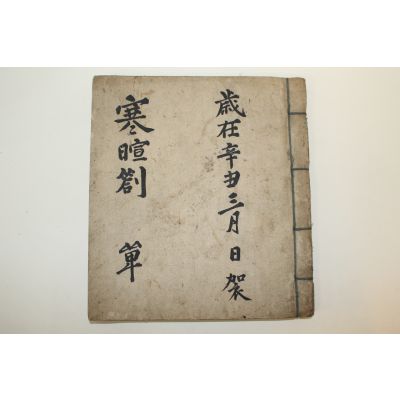 歲在辛丑三月 日
寒暄劄 單